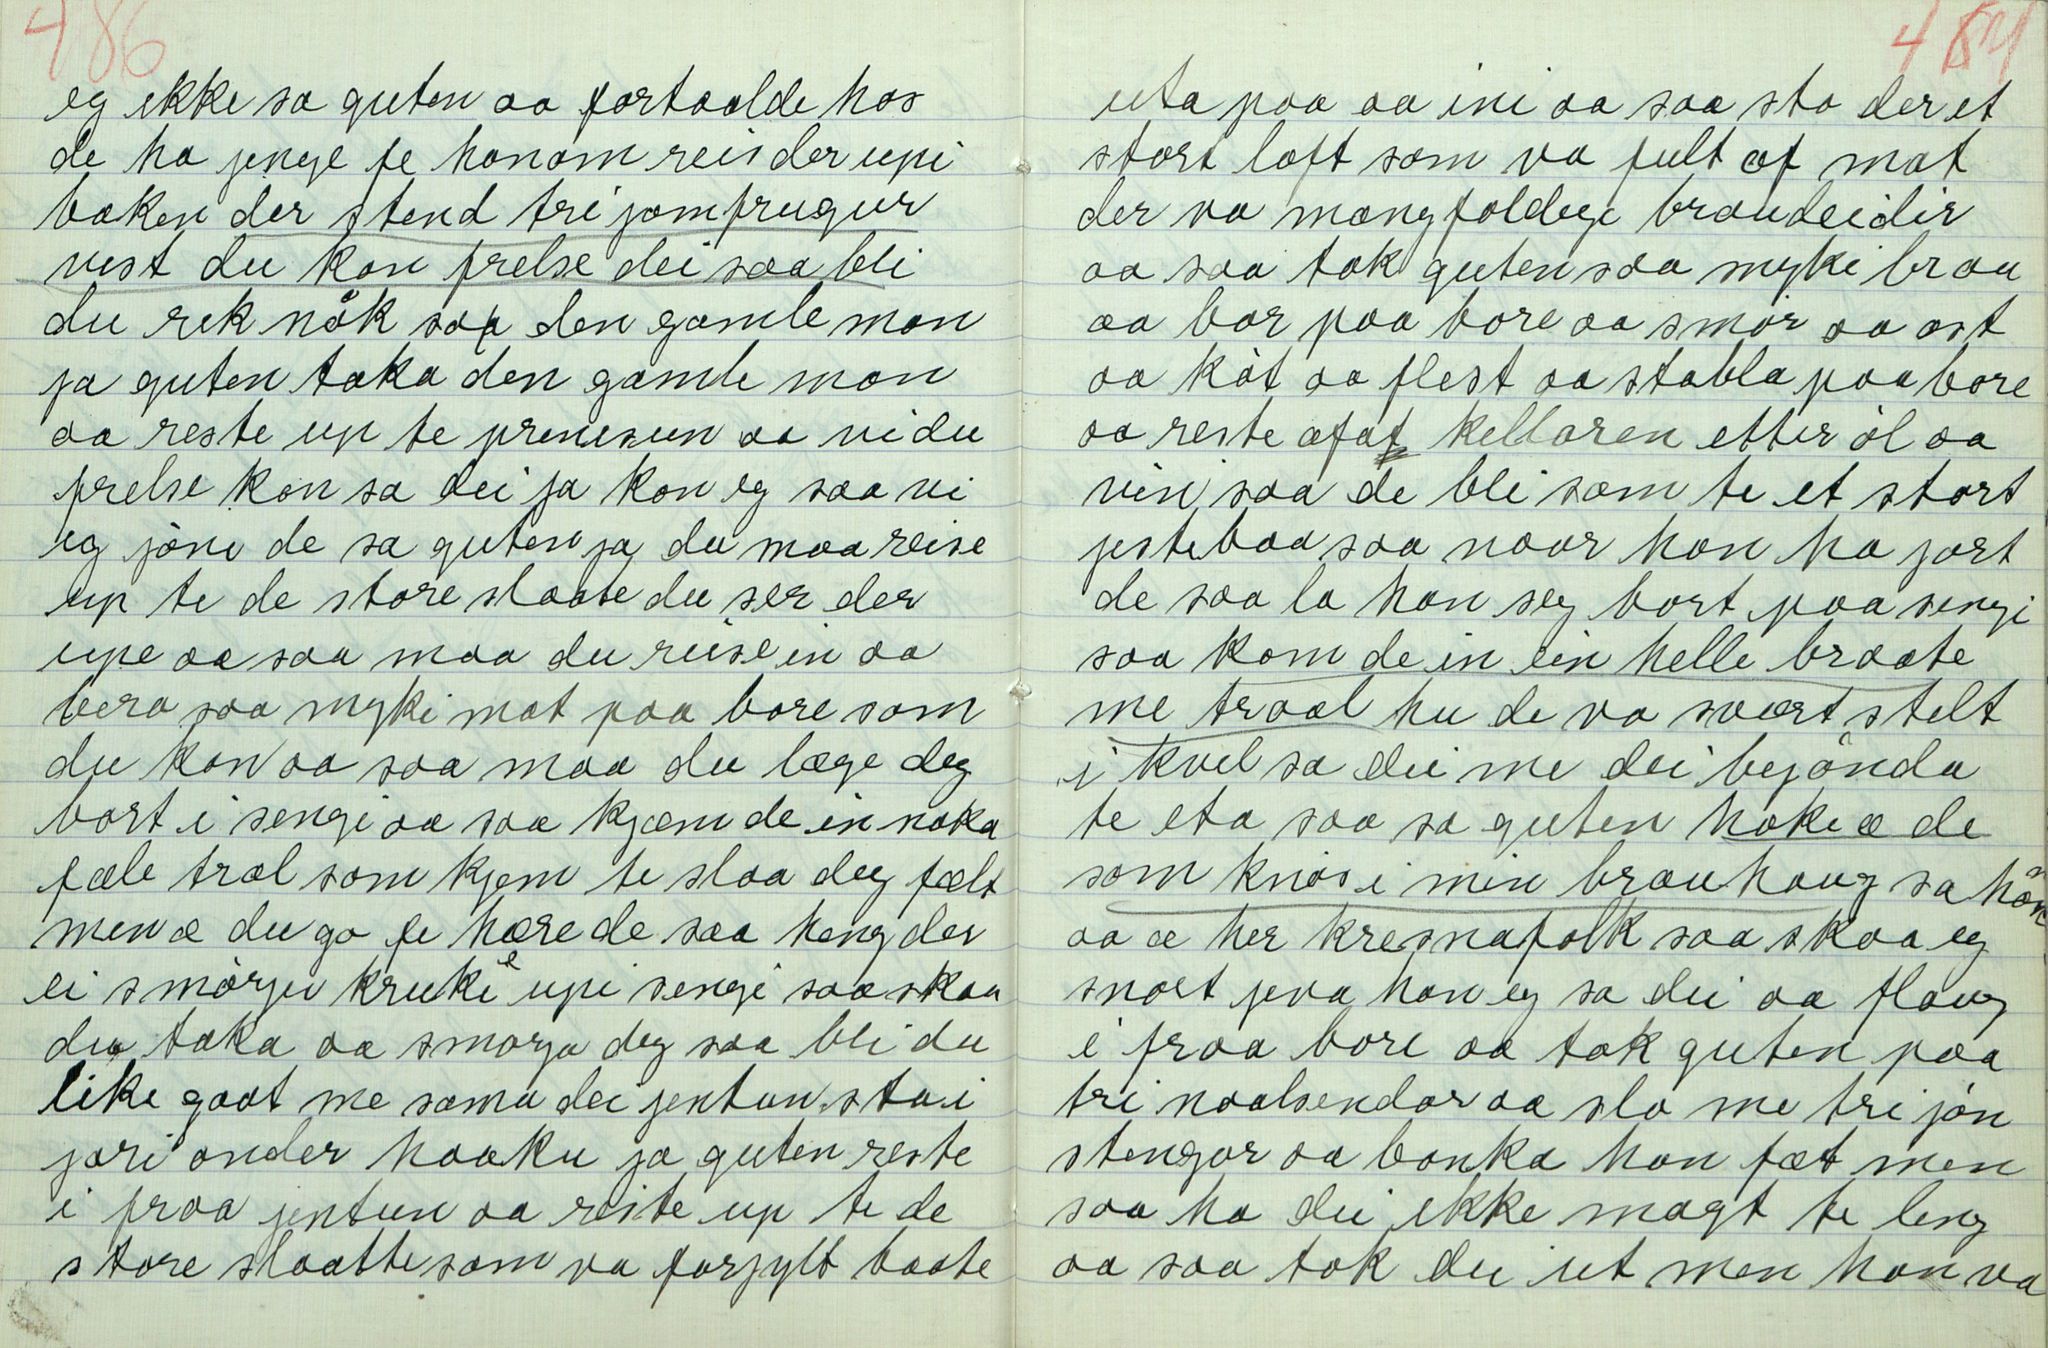 486
eg ikke sa guten aa fortaalde hos
de ha jenge te honom reis der upi
baken der stend tri jomfrugur
vist du kan frelse dei saa bli
du rek nåk saa den gamle man
ja guten taka den gamle man
aa reste up te prinesun aa vi du
frelse kan sa dei ja kan eg saa vi
eg jöni de sa guten ja du maa reise
up te de store slaate du ser der
upe aa saa maa du reise in aa
bera saa myki mat paa bore som
du kan aa saa maa du læge deg
bort i sengi aa saa kjæm de in noka
fæle tral som kjem te slaa deg fælt
men æ du go te hære de saa heng der
ei smörju kruke upi sengi saa skaa
du taka aa smørja deg saa bli du
like gaat me sama dei jentun sto i
jori onder haaku ja guten reste
i fraa jentun aa reiste up te de
store slaatte som va forjylt baate
484
uta paa aa ini aa saa sto der et
stort loft som va fult af mat
der va mangfoldige braudeidir
aa saa tok guten saa myki brau
aa bar paa bore aa smör aa ost
aa köt aa flest aa stabla paa bore
aa reste afat kellaren etter öl aa
vin saa de bli som te et stort
jesteboa saa naar han ha jort
de saa la han seg bort paa sengi
saa kom de in ein helle braate
me traal hu de va svært stelt
i kvel sa dei me dei bejönda
te eta saa sa guten hoke æ de
som knös i min brauhaug sa hån
aa æ her kresnafolk saa skaa eg
snort jeva han eg sa dei aa flaug
i fraa bore aa tok guten paa
tri naalsendar aa slo me tri jön
stengor aa banka han fæt men
saa ha dei ikke magt te leng
aa saa tok dei ut men han va